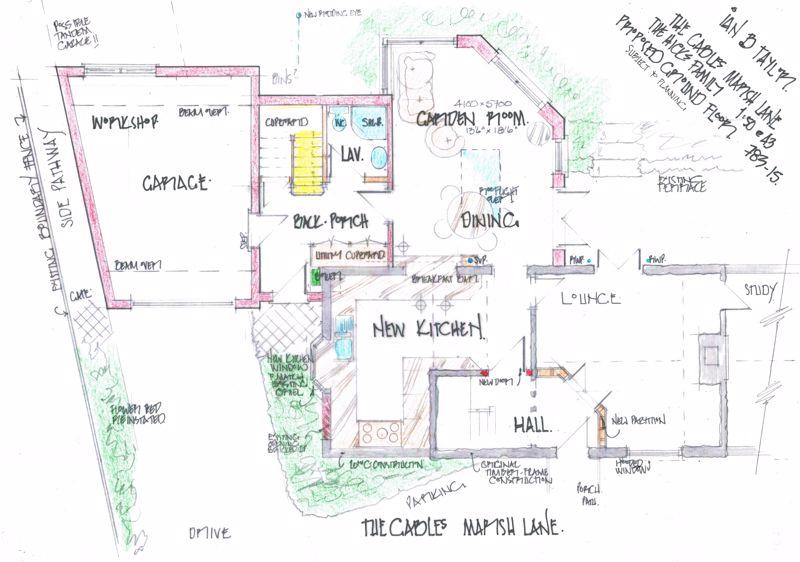 POSSIBLE
TANDEM
GARAGE!!
NEW RODDING EYE
BINS?
IAN B TAYLOR.
THE GABLES MARSH LANE
THE HICKS FAMILY
PROPOSED GROUND FLOOR
SUBJECT to PLANNING.
1:50 @ A3
789-15.
WORKSHOP
BEAM OVER.
CUPBOARD
WC
SHR.
LAV.
GARDEN ROOM.
4100 × 5700
13'6" × 18'6"
EXISTING BOUNDARY FENCE
SIDE PATHWAY
GARAGE.
ROOFLIGHT
OVER
EXISTING
TERRACE
BACK PORCH
DINING.
STEP
UTILITY CUPBOARD
SVP.
RWP.
RWP.
BEAM OVER
BREAKFAST BAR.
LOUNCE
STUDY
GATE
NEW KITCHEN.
NEW KITCHEN
WINDOW
NEW DOOR
FLOWER BED
REINSTATED
HALL.
NEW PARTITION
EXISTING
OPENING
BRICKED UP
CONSTRUCTION
ORIGINAL
TIMBER-FRAME
CONSTRUCTION
WINDOW
PARKING
PORCH
DRIVE
THE GABLES MARSH LANE.